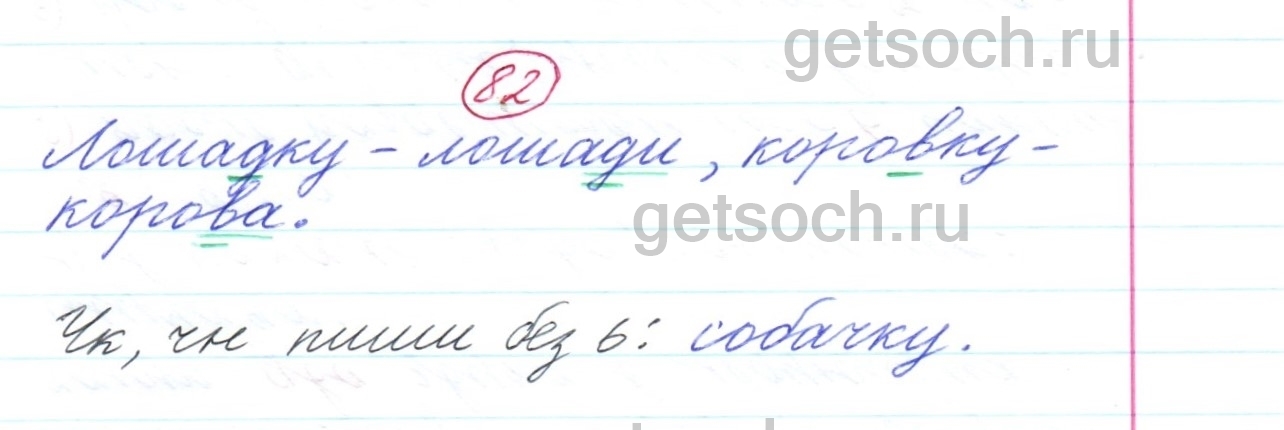 getsoch.ru
82
Лошадку – лошади, коровку –
корова.
getsoch.ru
Чк, чн пиши без ь: собачку.